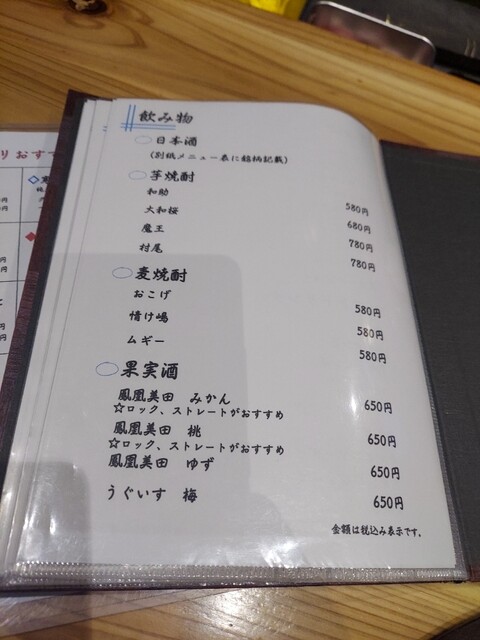 飲み物
日本酒
(別紙メニュー表に銘柄記載)
芋焼酎
和助 580円
大和桜 680円
魔王 780円
村尾 780円
麦焼酎
おこげ 580円
情け嶋 580円
ムギー 580円
果実酒
鳳凰美田 みかん 650円
☆ロック、ストレートがおすすめ
鳳凰美田 桃 650円
☆ロック、ストレートがおすすめ
鳳凰美田 ゆず 650円
うぐいす 梅 650円
金額は税込み表示です。
りおすす